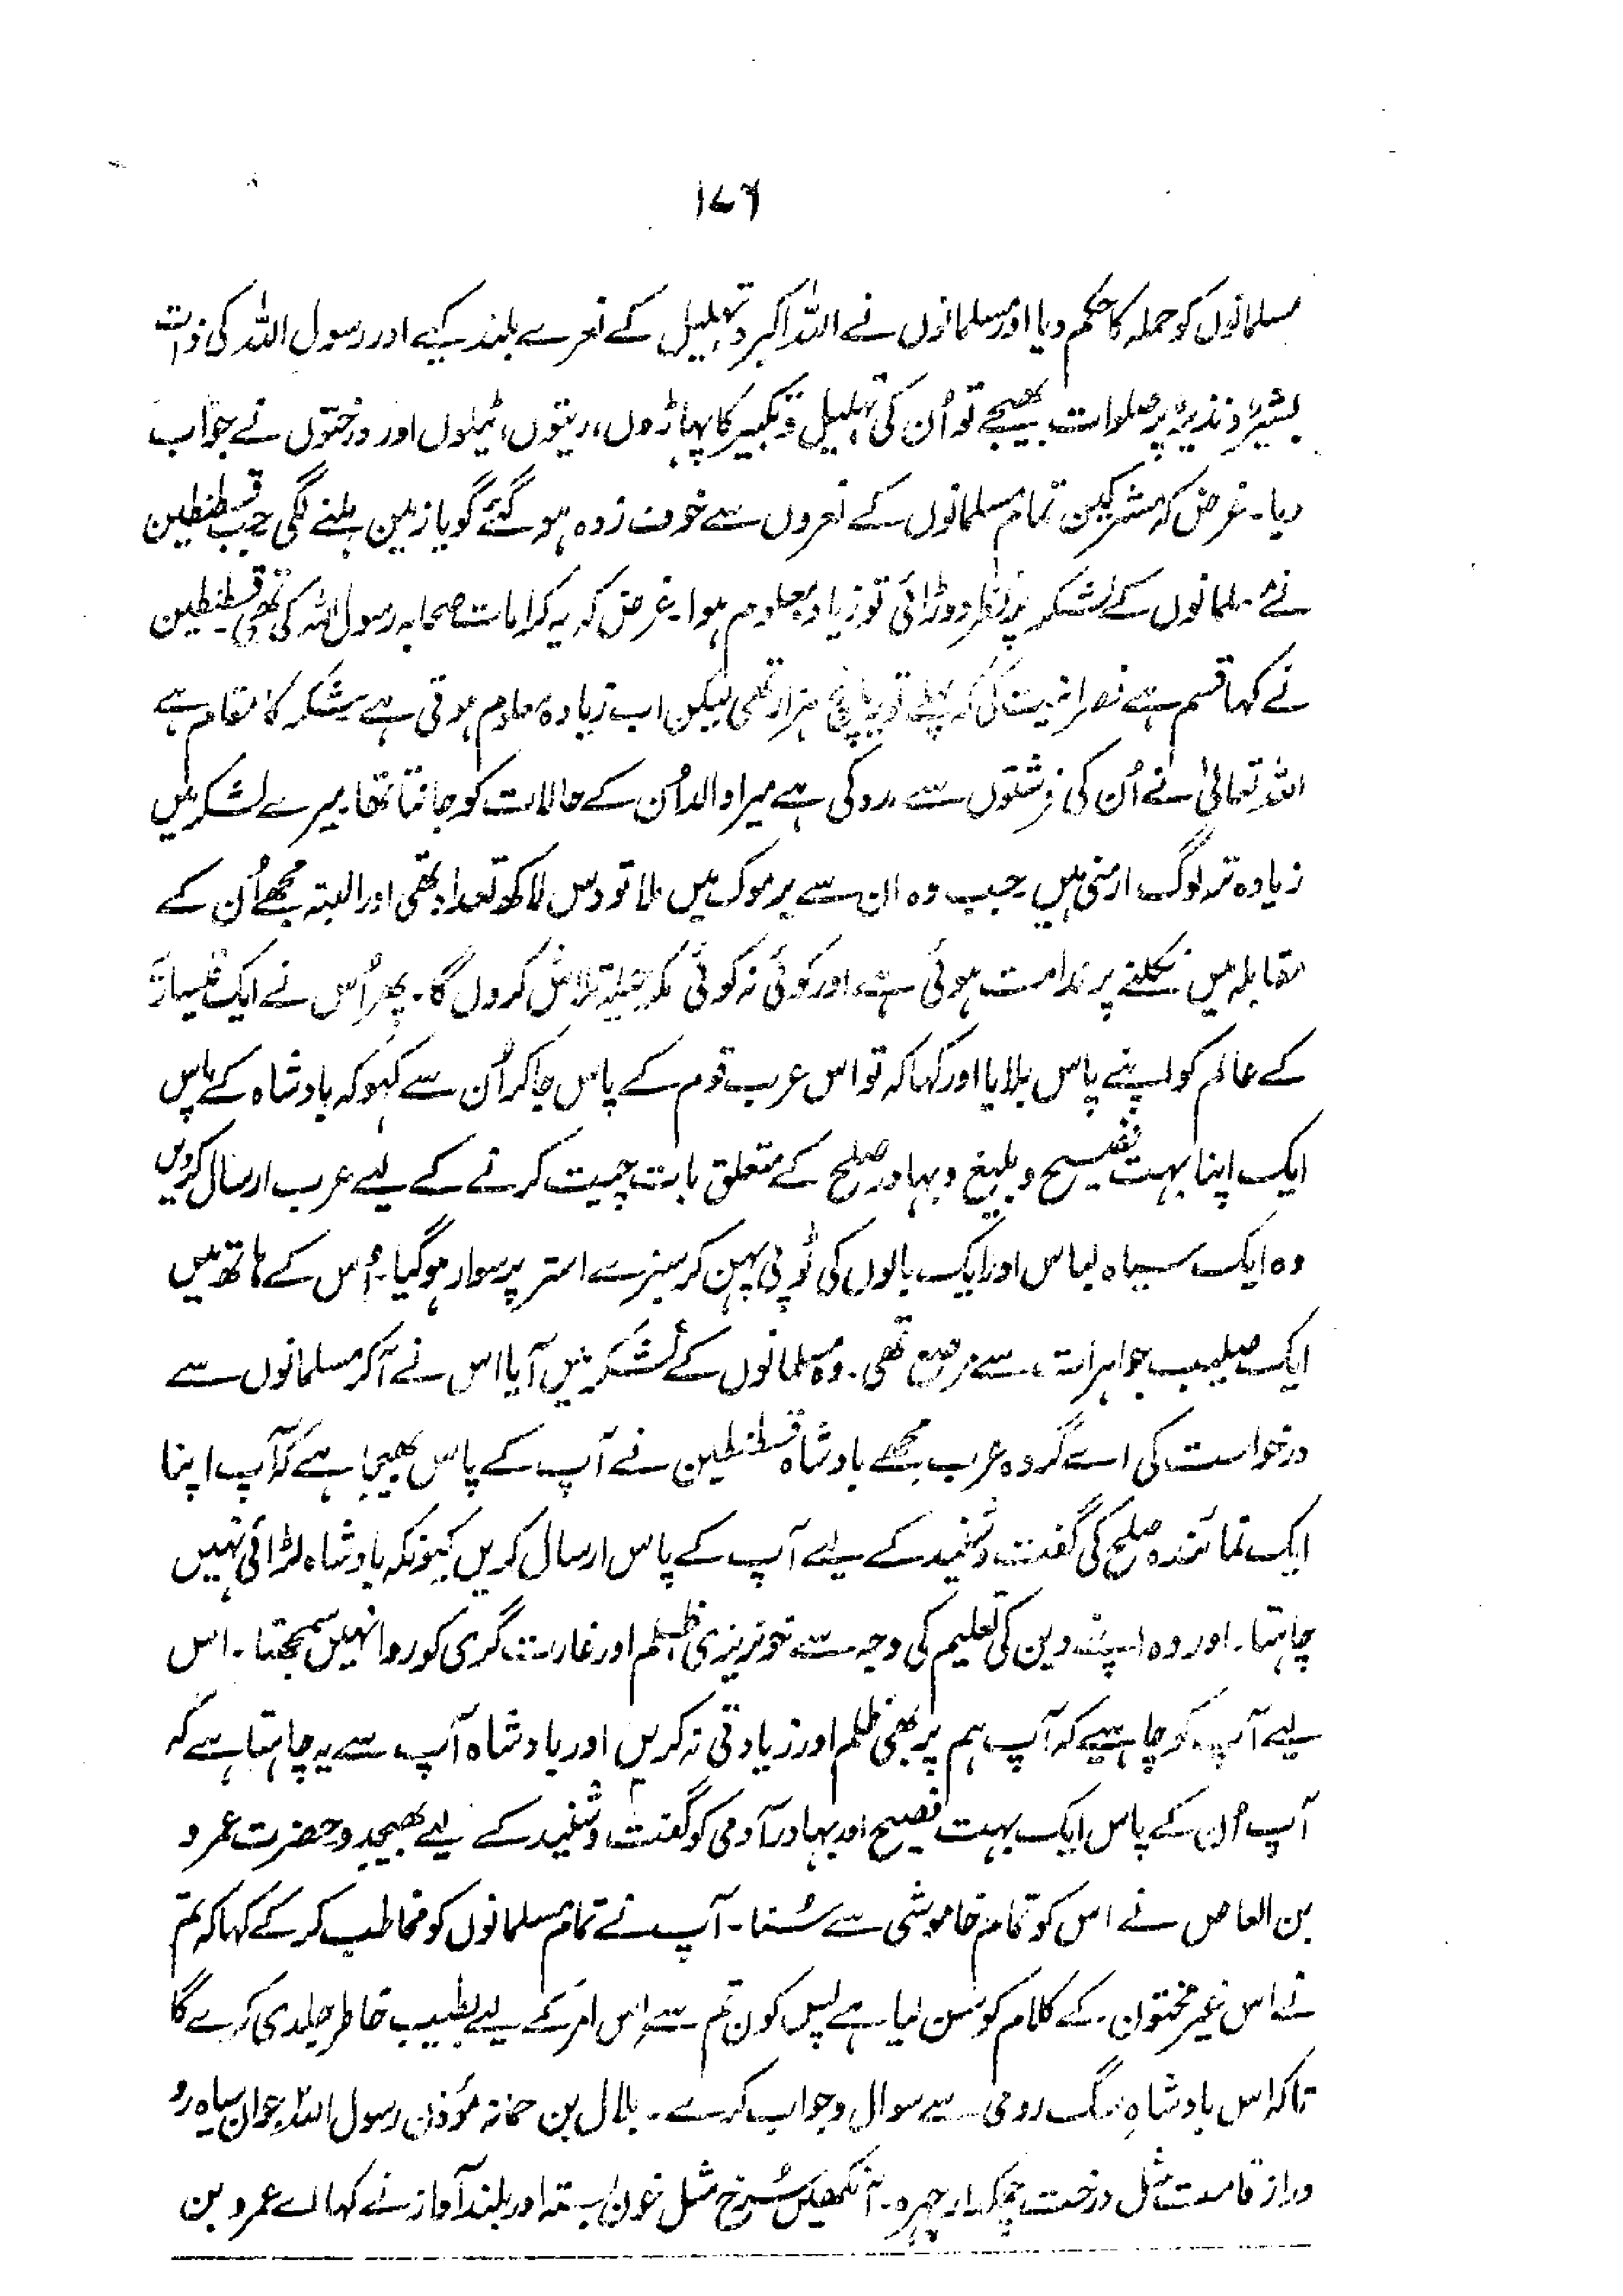 ۱۷۶
مسلمانوں کو حملہ کا حکم دیا اور مسلمانوں نے اللہ اکبر و تہلیل کے نعرے بلند کیے اور رسول اللہ کی ذات
بشیرؐ و نذیرؐ پر صلوات بھیجے تو اُن کی تہلیل و تکبیر کا پہاڑوں، ریتوں، ٹیلوں اور درختوں نے جواب
دیا۔ غرض کہ مشرکین تمام مسلمانوں کے نعروں سے خوف زدہ ہو گئے گویا زمین ہلنے لگی جب قسطنطین
نے مسلمانوں کے لشکر پر نظر دوڑائی تو زیادہ معلوم ہوا۔ غرض کہ یہ کرامات صحابہ رسول اللہ کی تھی۔ قسطنطین
نے کہا قسم ہے نصرانیت کی کہ پہلے تو پانچ ہزار تھی لیکن اب زیادہ معلوم ہوتی ہے شکر کا مقام ہے
اللہ تعالیٰ نے اُن کی فرشتوں سے مدد کی ہے میرا والد اُن کے حالات کو جانتا تھا۔ میرے لشکر میں
زیادہ تر لوگ ارمنی ہیں۔ جب وہ ان سے یرموک میں ملا تو دس لاکھ تعداد تھی اور البتہ مجھے اُن کے
مقابلہ میں نکلنے پر ندامت ہوئی ہے اور کوئی نہ کوئی مکر حیلہ تلاش کروں گا۔ پھر اُس نے ایک
کے عالم کو اپنے پاس بلایا اور کہا کہ تو اس عرب قوم کے پاس جا کر اُن سے کہو کہ بادشاہ کے پاس
ایک اپنا بہت فصیح و بلیغ و بہادر صلح کے متعلق بات چیت کرنے کے لیے عرب ارسال کردیں
وہ ایک سیاہ لباس اور ایک بالوں کی ٹوپی پہن کر سبزے استر پر سوار ہو گیا۔ اُس کے ہاتھ میں
ایک صلیب جواہرات سے مرصع تھی۔ وہ مسلمانوں کے لشکر میں آیا اس نے آکر مسلمانوں سے
درخواست کی اے گروہ عرب مجھے بادشاہ قسطنطین نے آپ کے پاس بھیجا ہے کہ آپ اپنا
ایک نمائندہ صلح کی گفت و شنید کے لیے آپ کے پاس ارسال کریں کیونکہ بادشاہ لڑائی نہیں
چاہتا۔ اور وہ اپنے دین کی تعلیم کی وجہ سے خونریزی ظلم اور غارت گری کو روا نہیں سمجھتا۔ اس
لیے آپ کو چاہیے کہ آپ ہم پر بھی ظلم اور زیادتی نہ کریں اور بادشاہ آپ سے یہ چاہتا ہے کہ
آپ اُن کے پاس ایک بہت فصیح اور بہادر آدمی کو گفت و شنید کے لیے بھیجدو حضرت عمرو
بن العاص نے اس کو تمام خاموشی سے سُنا۔ آپ نے تمام مسلمانوں کو مخاطب کر کے کہا کہ تم
نے اس غیر مختون کے کلام کو سن لیا ہے پس کون تم سے اس امر کے لیے بطیب خاطر جلدی کرے گا
تاکہ اس بادشاہِ سگ رومی سے سوال و جواب کرے۔ بلال بن حمانہ مؤذن رسول اللہؐ جوان سیاہ رو
دراز قامت مثل درخت چمکدار چہرہ۔ آنکھیں سُرخ مثل خون بستہ اور بلند آواز نے کہا اے عمرو بن